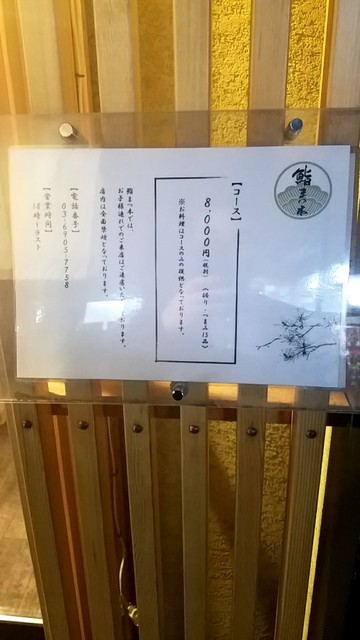 鮨 まつ本
【コース】
８,０００円(税別) (握り・つまみ15品)
※お料理はコースのみの提供となっております。
鮨まつ本では、
お子様連れでのご来店はご遠慮いただいております。
店内は全面禁煙となっております。
【電話番号】
０３-６９０５-７７５８
【営業時間】
18時～ラスト